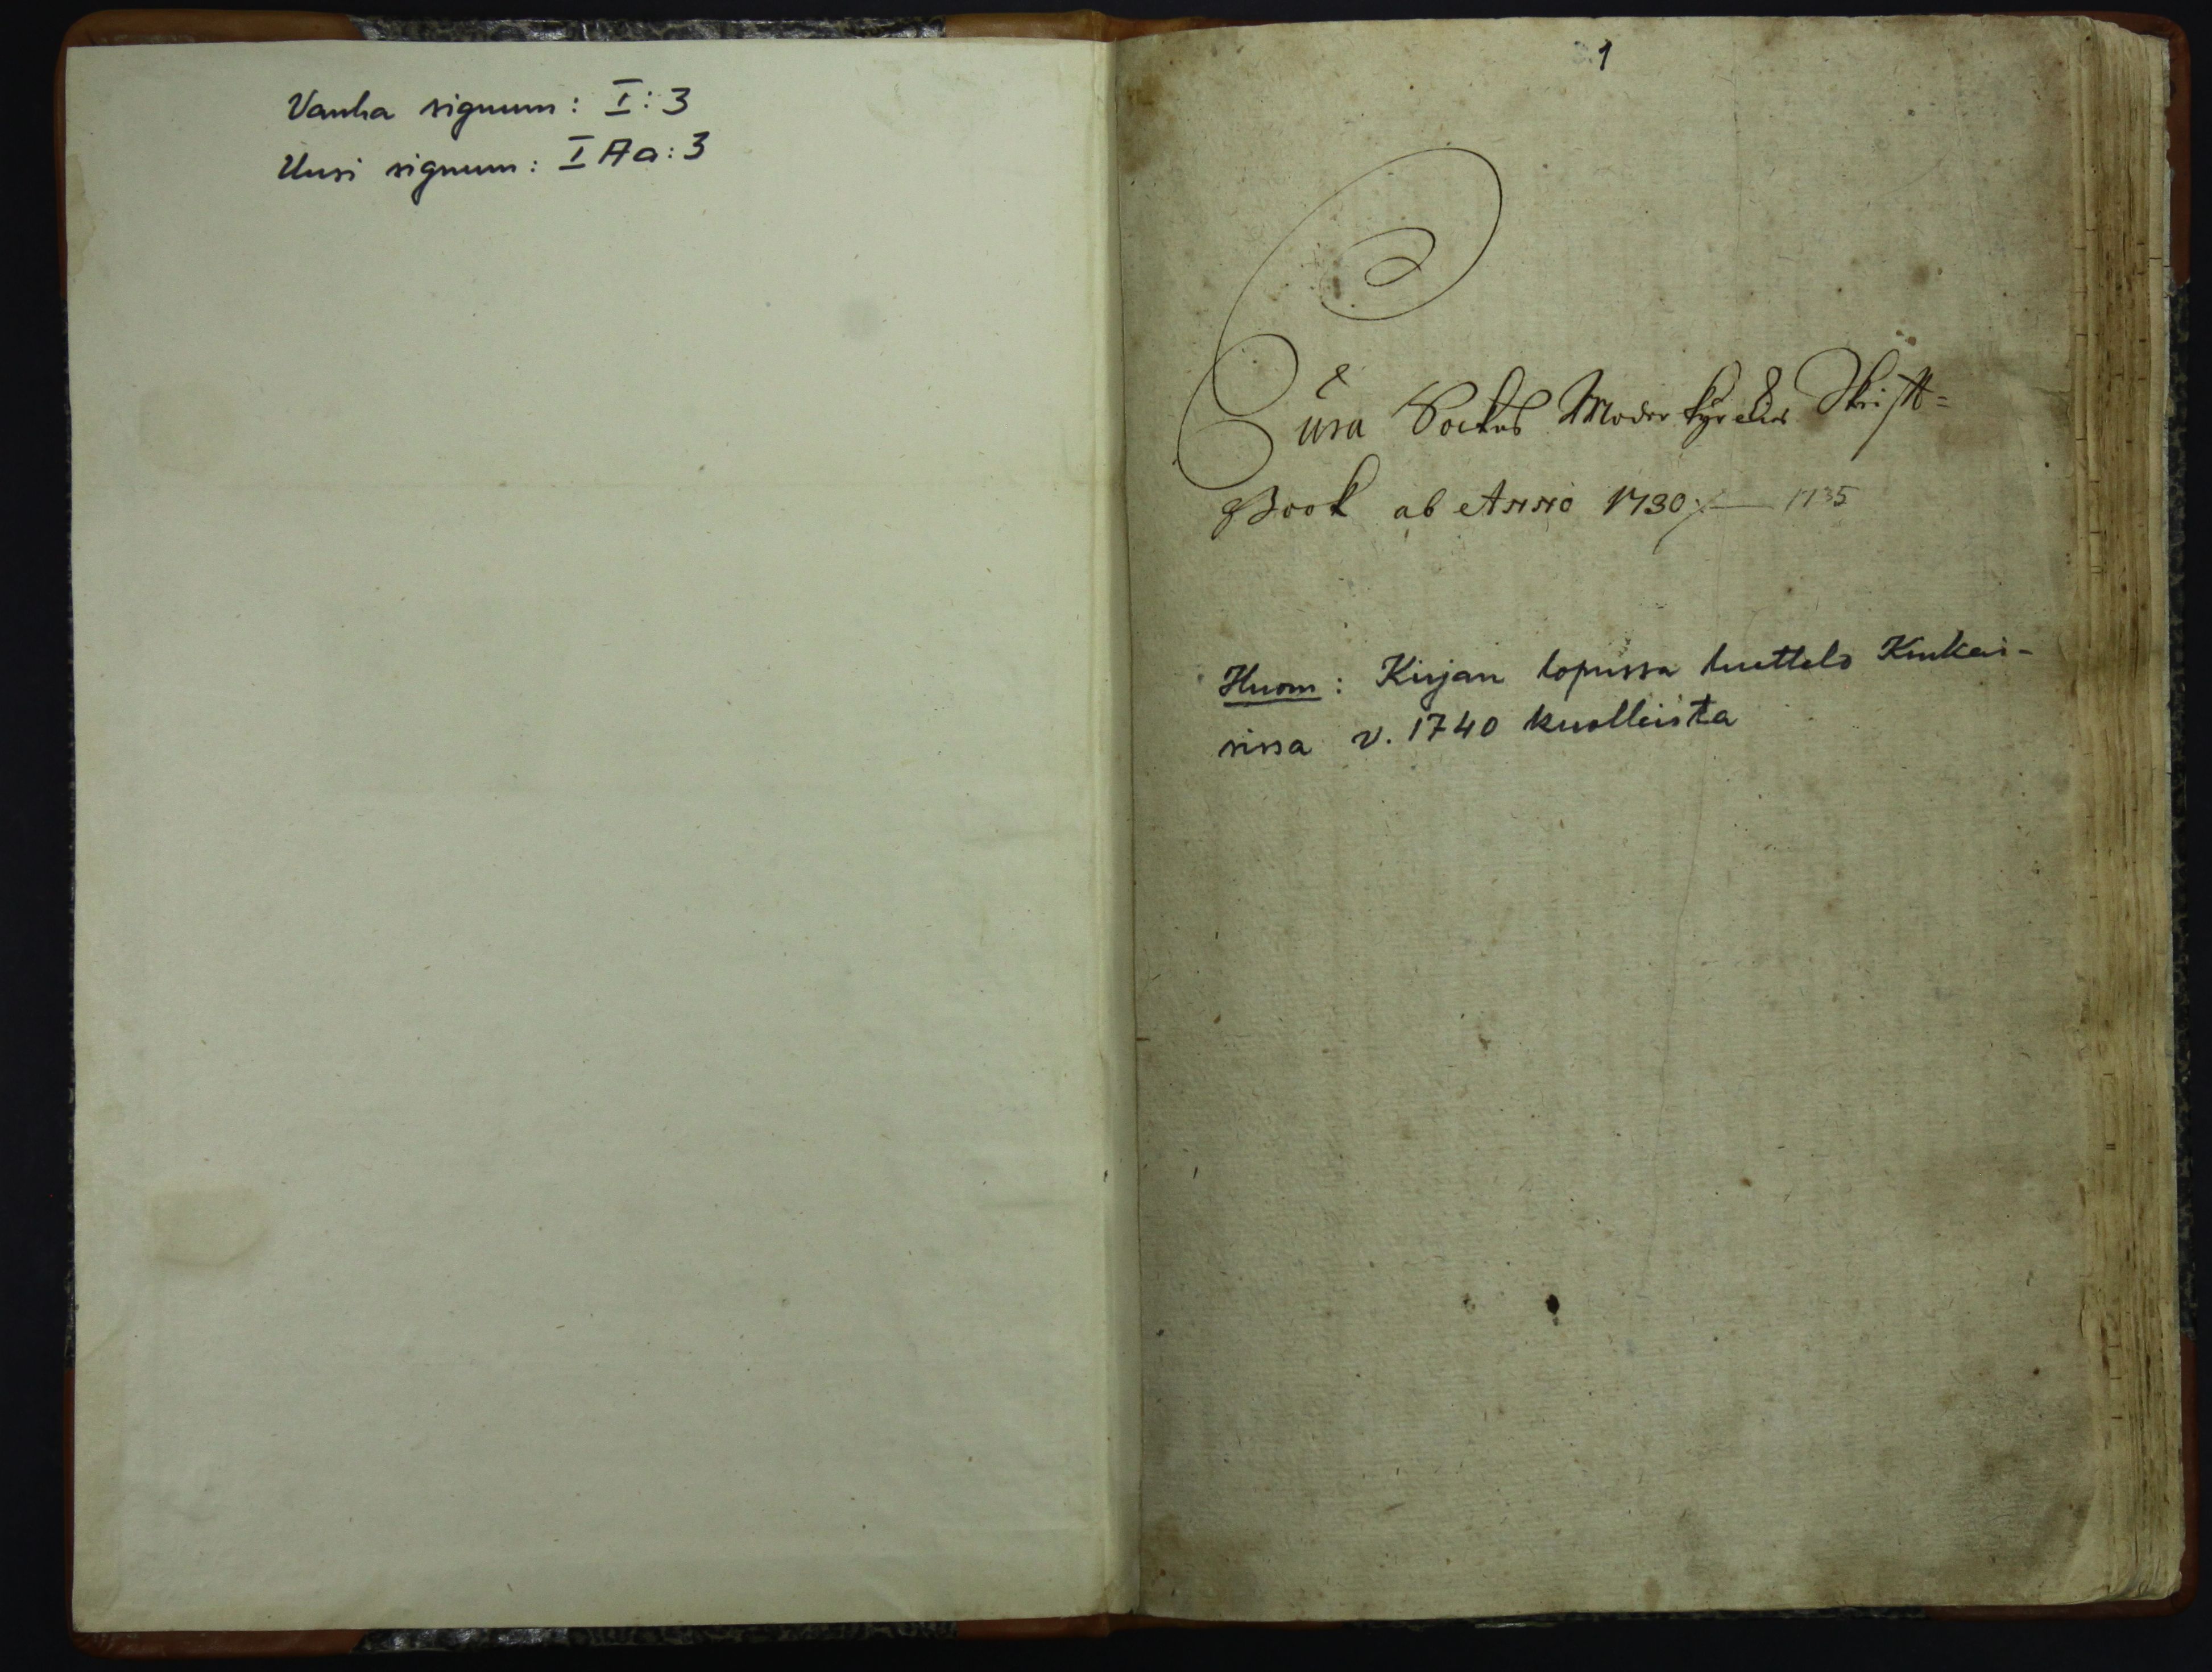 Vanha signum: I:3
Uusi signum: I Aa:3
1
Eura Sockns Moder kyrckios Skrifft=
Book ab Anno 1730 ⁒ — 1735
Huom: Kirjan lopussa luettelo Kiukai-
sissa v. 1740 kuolleista